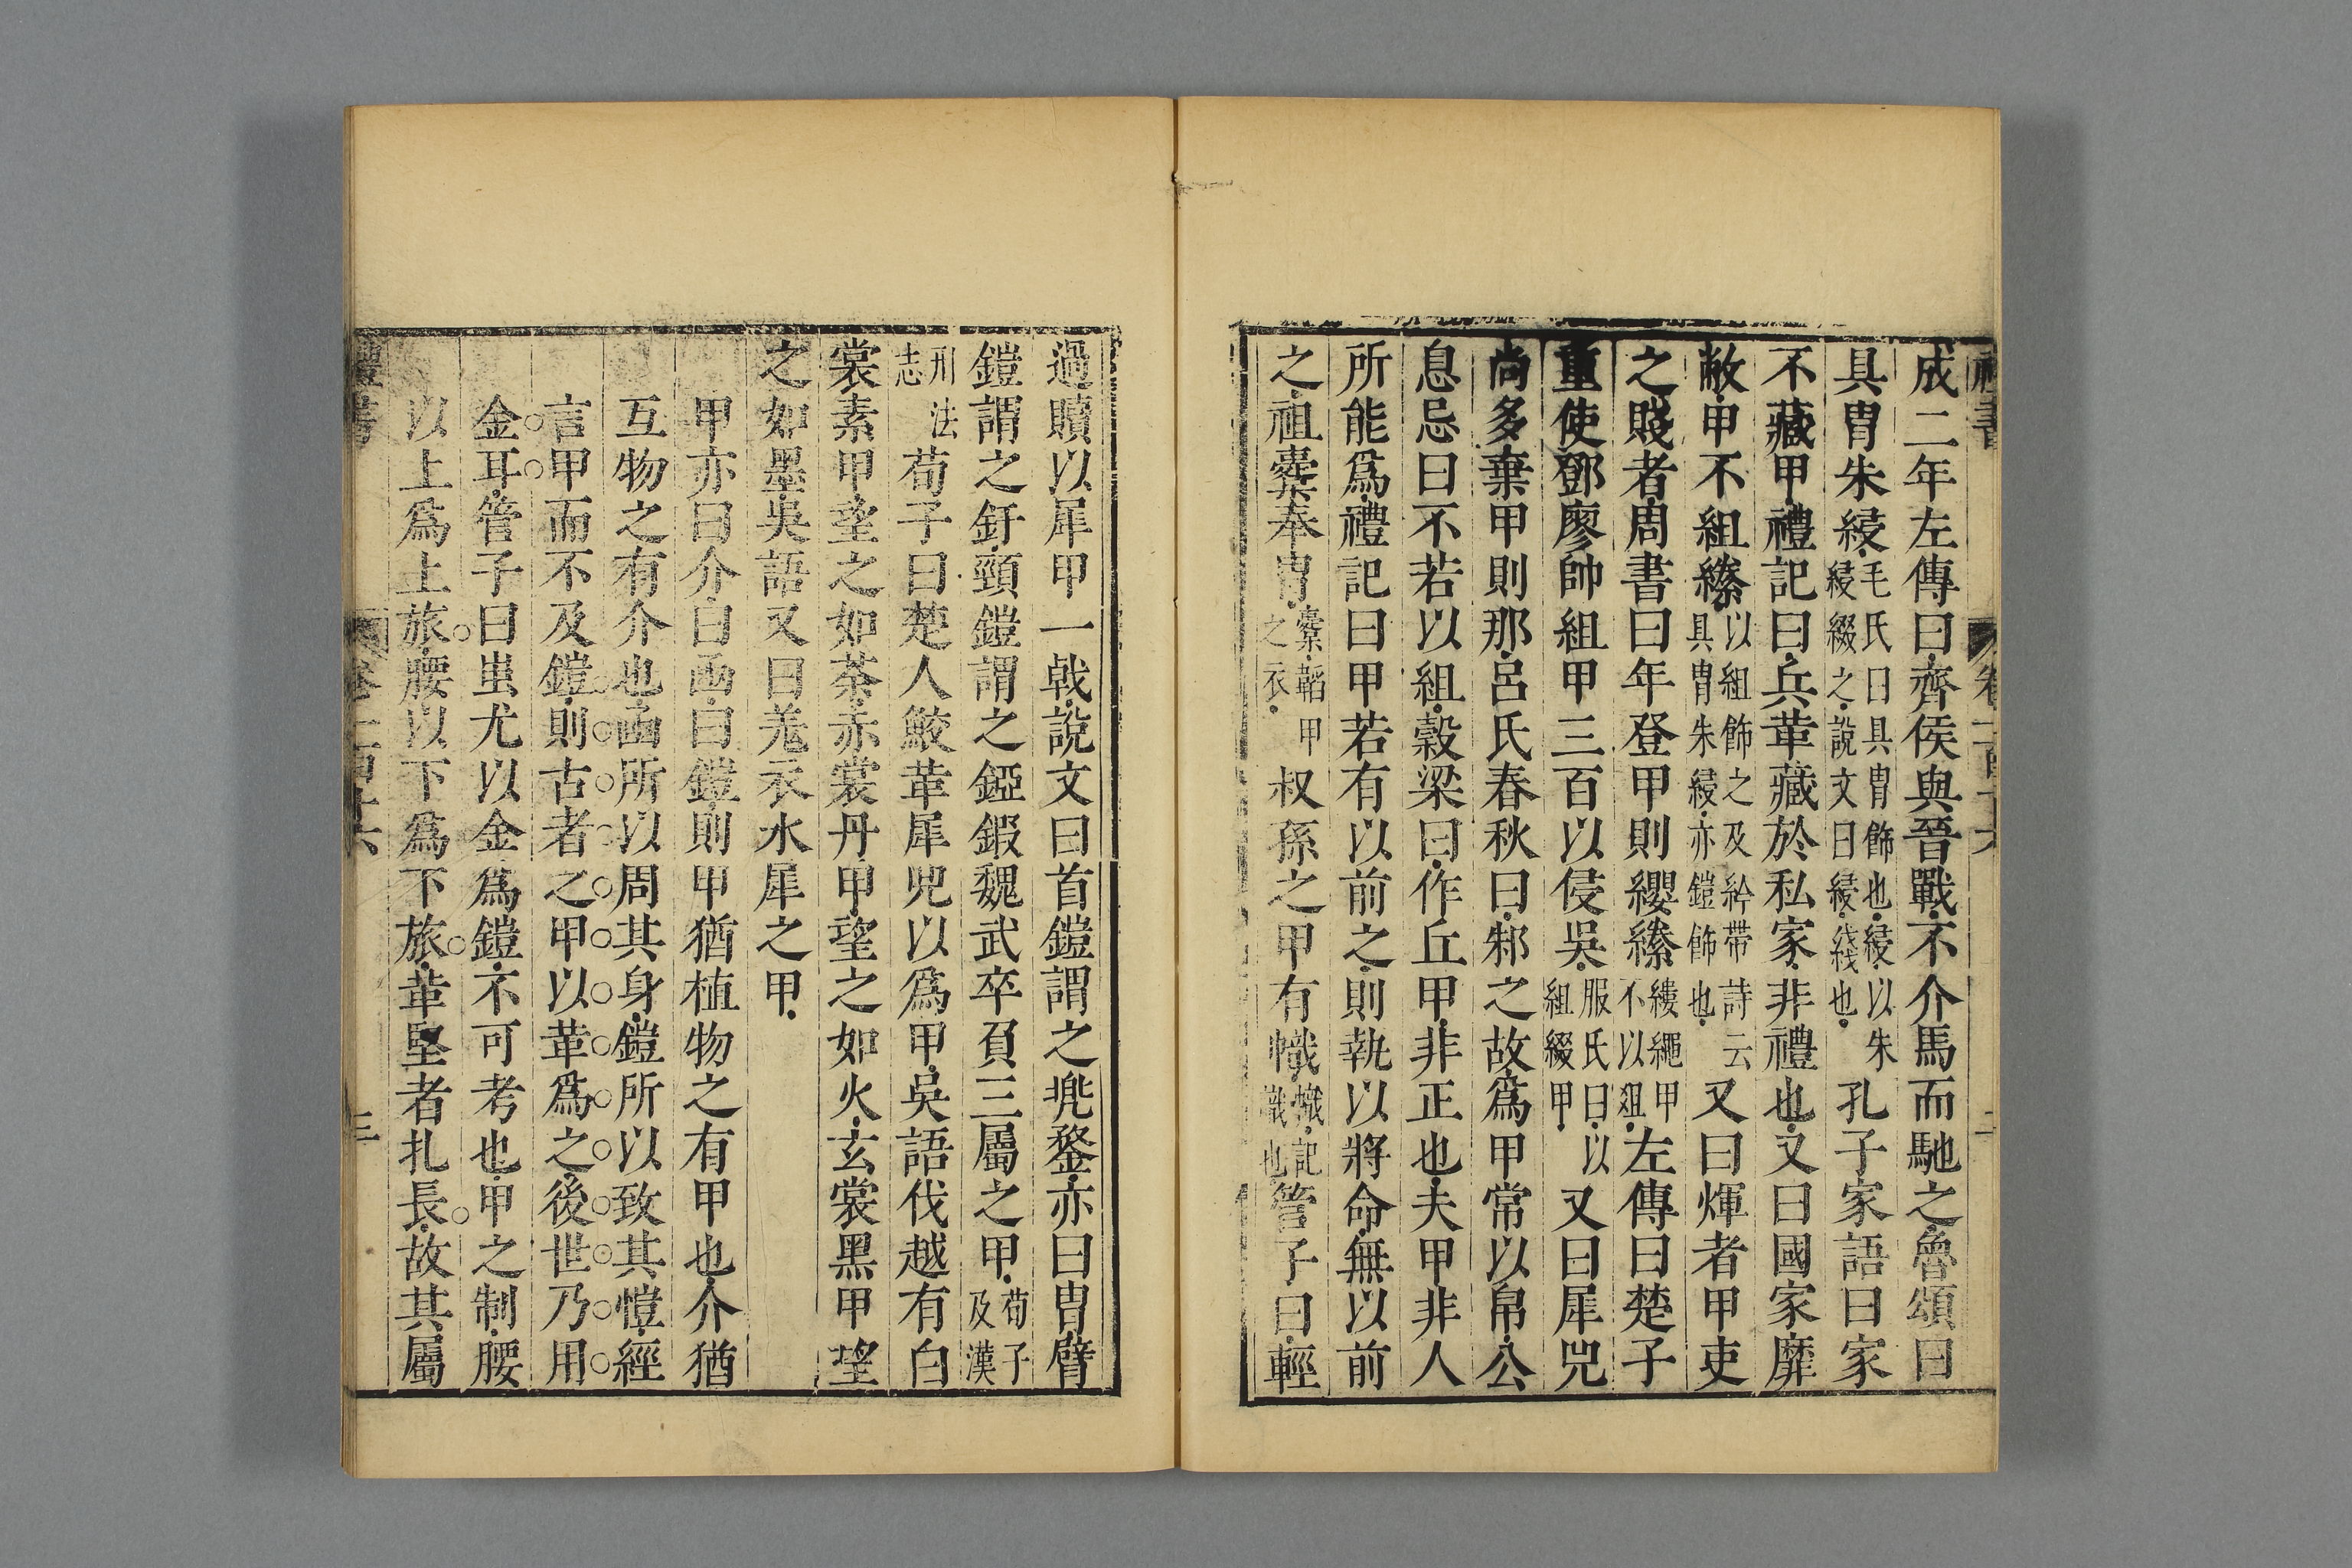 成二年左傳曰齊侯與晉戰不介馬而馳之魯頌曰
具冑朱綅毛氏曰具冑飾也綅以朱綅綴之說文曰綅綫也孔子家語曰家
不藏甲禮記曰兵革藏於私家非禮也又曰國家靡
敝甲不組縢以組飾之及紟帶詩云具冑朱綅亦鎧飾也又曰煇者甲吏
之賤者周書曰年登甲則纓縢縷繩甲不以組左傳曰楚子
重使鄧廖帥組甲三百以侵吳服氏曰以組綴甲又曰犀兕
尚多棄甲則那呂氏春秋曰邾之故爲甲常以帛公
息忌曰不若以組穀梁曰作丘甲非正也夫甲非人
所能爲禮記曰甲若有以前之則執以將命無以前
之袒櫜奉冑櫜韜甲之衣叔孫之甲有幟幟記識也管子曰輕
過贖以犀甲一戟說文曰首鎧謂之兜鍪亦曰冑臂
鎧謂之釬頸鎧謂之錏鍜魏武卒負三屬之甲荀子及漢
刑法志荀子曰楚人鮫革犀兕以爲甲吳語伐越有白
裳素甲望之如荼赤裳丹甲望之如火玄裳黑甲望
之如墨吳語又曰羌衣水犀之甲
甲亦曰介曰函曰鎧則甲猶植物之有甲也介猶
互物之有介也函所以周其身鎧所以致其愷經
言甲而不及鎧則古者之甲以革爲之後世乃用
金耳管子曰蚩尤以金爲鎧不可考也甲之制腰
以上爲上旅腰以下爲下旅革堅者札長故其屬
禮書
卷一百十六
三